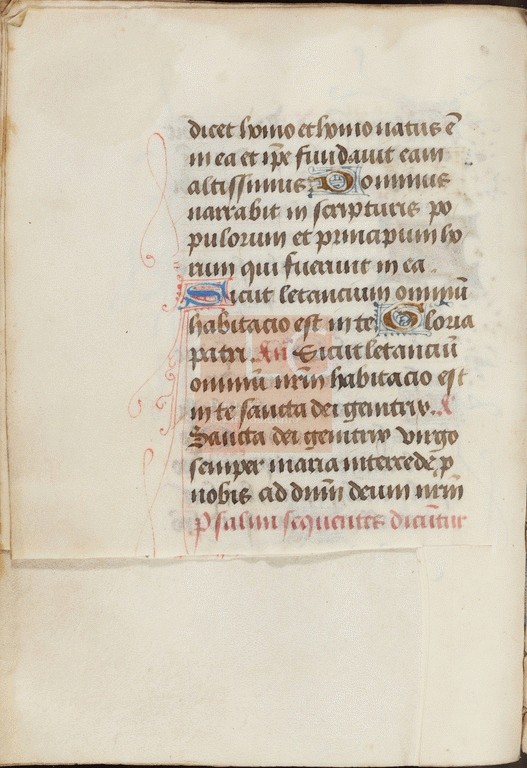 dicet homo et homo natus ē
in ea et ip̄e fundauit eam
altissimus Dominus
narrabit in scripturis po
pulorum et principum ho
rum qui fuerunt in ea
Sicut letancium omniū
habitacio est in te Gloria
patri. Añ Sicut letanciū
omniū nr̄m habitacio est
in te sancta dei genitrix.
Sancta dei genitrix virgo
semper maria intercede p
nobis ad dn̄m deum nr̄m
Psalmi sequentes dicūtur